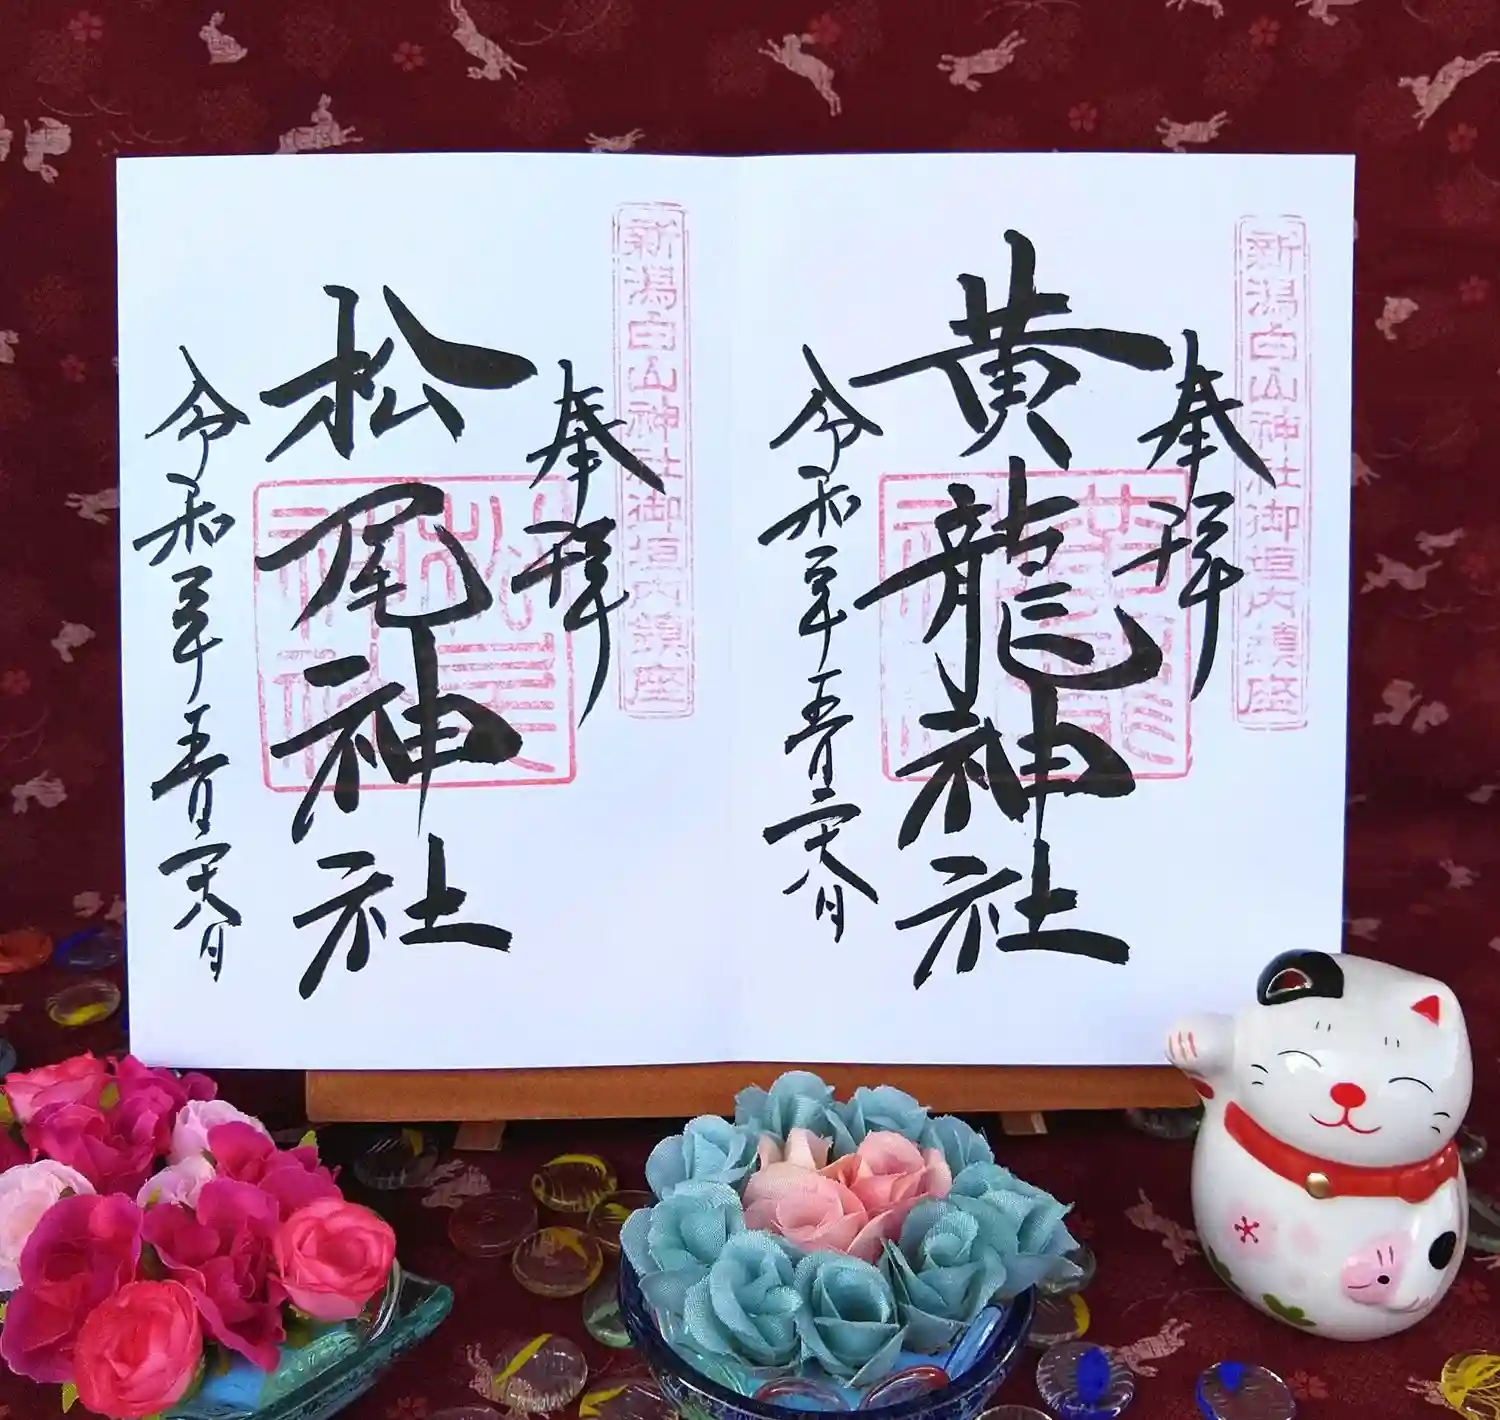 新潟白山神社御垣内鎮座
奉拝
黄龍神社
令和三年五月二十八日
新潟白山神社御垣内鎮座
奉拝
松尾神社
令和三年五月二十八日